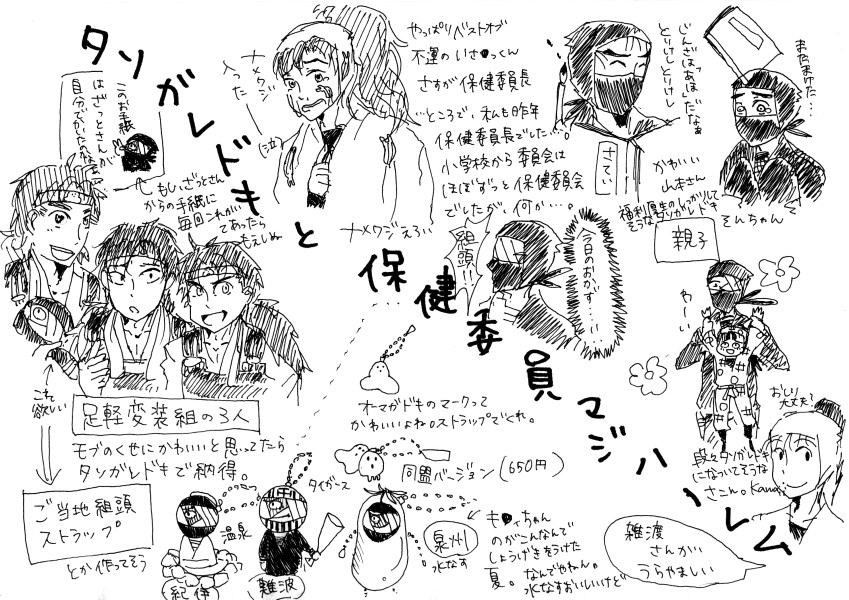 タソガレドキと保健委員マジハーレム
このお手紙
はざっとさんが
ナメクジ
入った
(泣)
もしざっとさん
からの手紙に
毎回これかい
てあったら
もえしぬ
ナメクジえろい
やっぱりベストオブ
不運のいさ●っくん
さすが保健委員長
…ところで、私も昨年
保健委員長でしたい…。
小学校から委員会は
ほぼずっと保健委員会
でしたが、何か…。
とりけしとりけし
さてい
またまけた…
かわいい
山本さん
そんちゃん
組頭!!
今日のおかず…!!
親子
わーい
おしり
大丈夫?
段々タソガレドキ
になついてそうな
さこん。
雑渡
さんがい
うらやましい
これ
欲しい
足軽変装組の3人
モブのくせにかわいいと思ってたら
タソガレドキで納得。
オーマガドキのマークって
かわいいよね。ストラップでくれ。
同盟バージョン(650円)
ご当地組頭
ストラップ
とか作ってそう
温泉
紀伊
タイガース
難波
泉州
水なす
も●ィちゃん
のがこんなんで
しょうげきをうけた
夏。なんでやねん。
水なすおいしいけど